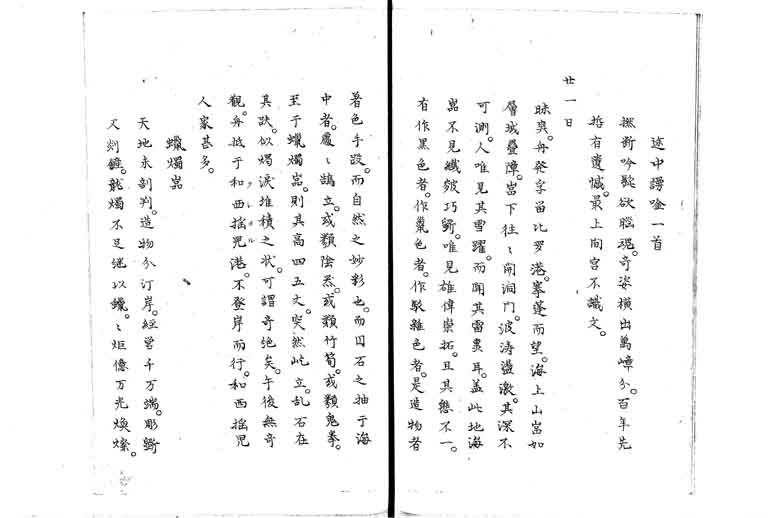 途中謾唫一首
撚斷吟髭欲腦魂。奇姿橫出萬嶂分。百年先
哲有遺憾。最上向宮不識文。
廿一日
昧爽。舟発字畄比罗港。搴蓬而望。海上山嵓如
層城疊障。嵓下往〻開洞門。波濤盪激。其深不
可測。人唯見其雪躍。而聞其雷轟耳。蓋此地海
嵓不見纖皴巧斵。唯見雄偉崇拓。且其態不一。
有作黒色者。作黛色者。作駁雜色者。是造物者
著色手段。而自然之妙彩也。而囙石之抽于海
中者。處〻鵠立。或類陰忝。或類竹筍。或類鬼拳。
至于蠟燭嵓。則其高四五丈。突然屹立。乱石在
其趺。似燭涙堆積之状。可謂奇绝矣。午後無奇
觀。舟抵于和西摇児港。不登岸而行。和西摇児
人家甚多。
蠟燭嵓
天地未剖判。造物分汀岸。經営千万端。彫斵
又剡鍾。龍燭不足继以蠟。〻炬億万光煥燦。